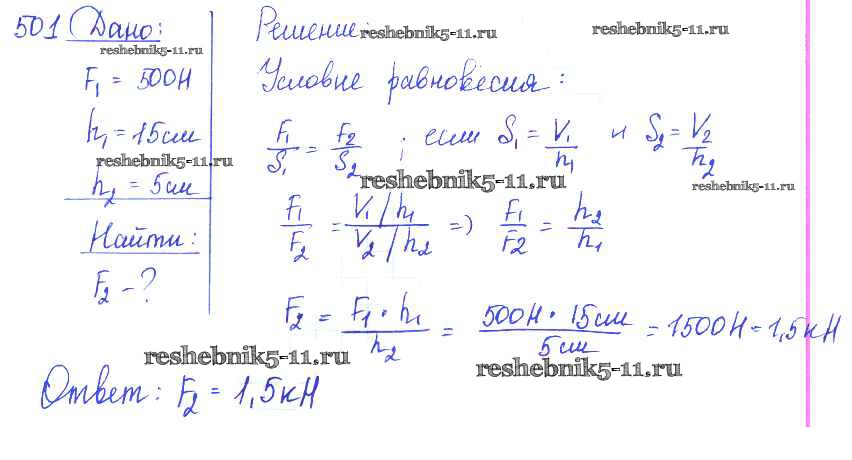 501 Дано:
reshebnik5-11.ru
F₁ = 500Н
h₁ = 15см
reshebnik5-11.ru
h₂ = 5см
Найти:
F₂ - ?
Решение:
reshebnik5-11.ru
reshebnik5-11.ru
Условие равновесия:
F₁/S₁ = F₂/S₂ ; если S₁ = V₁/h₁ и S₂ = V₂/h₂
reshebnik5-11.ru
reshebnik5-11.ru
F₁/F₂ = V₁/h₁ / V₂/h₂ => F₁/F₂ = h₂/h₁
F₂ = F₁ · h₁ / h₂ = 500Н · 15см / 5см = 1500Н = 1,5кН
reshebnik5-11.ru
reshebnik5-11.ru
Ответ: F₂ = 1,5кН